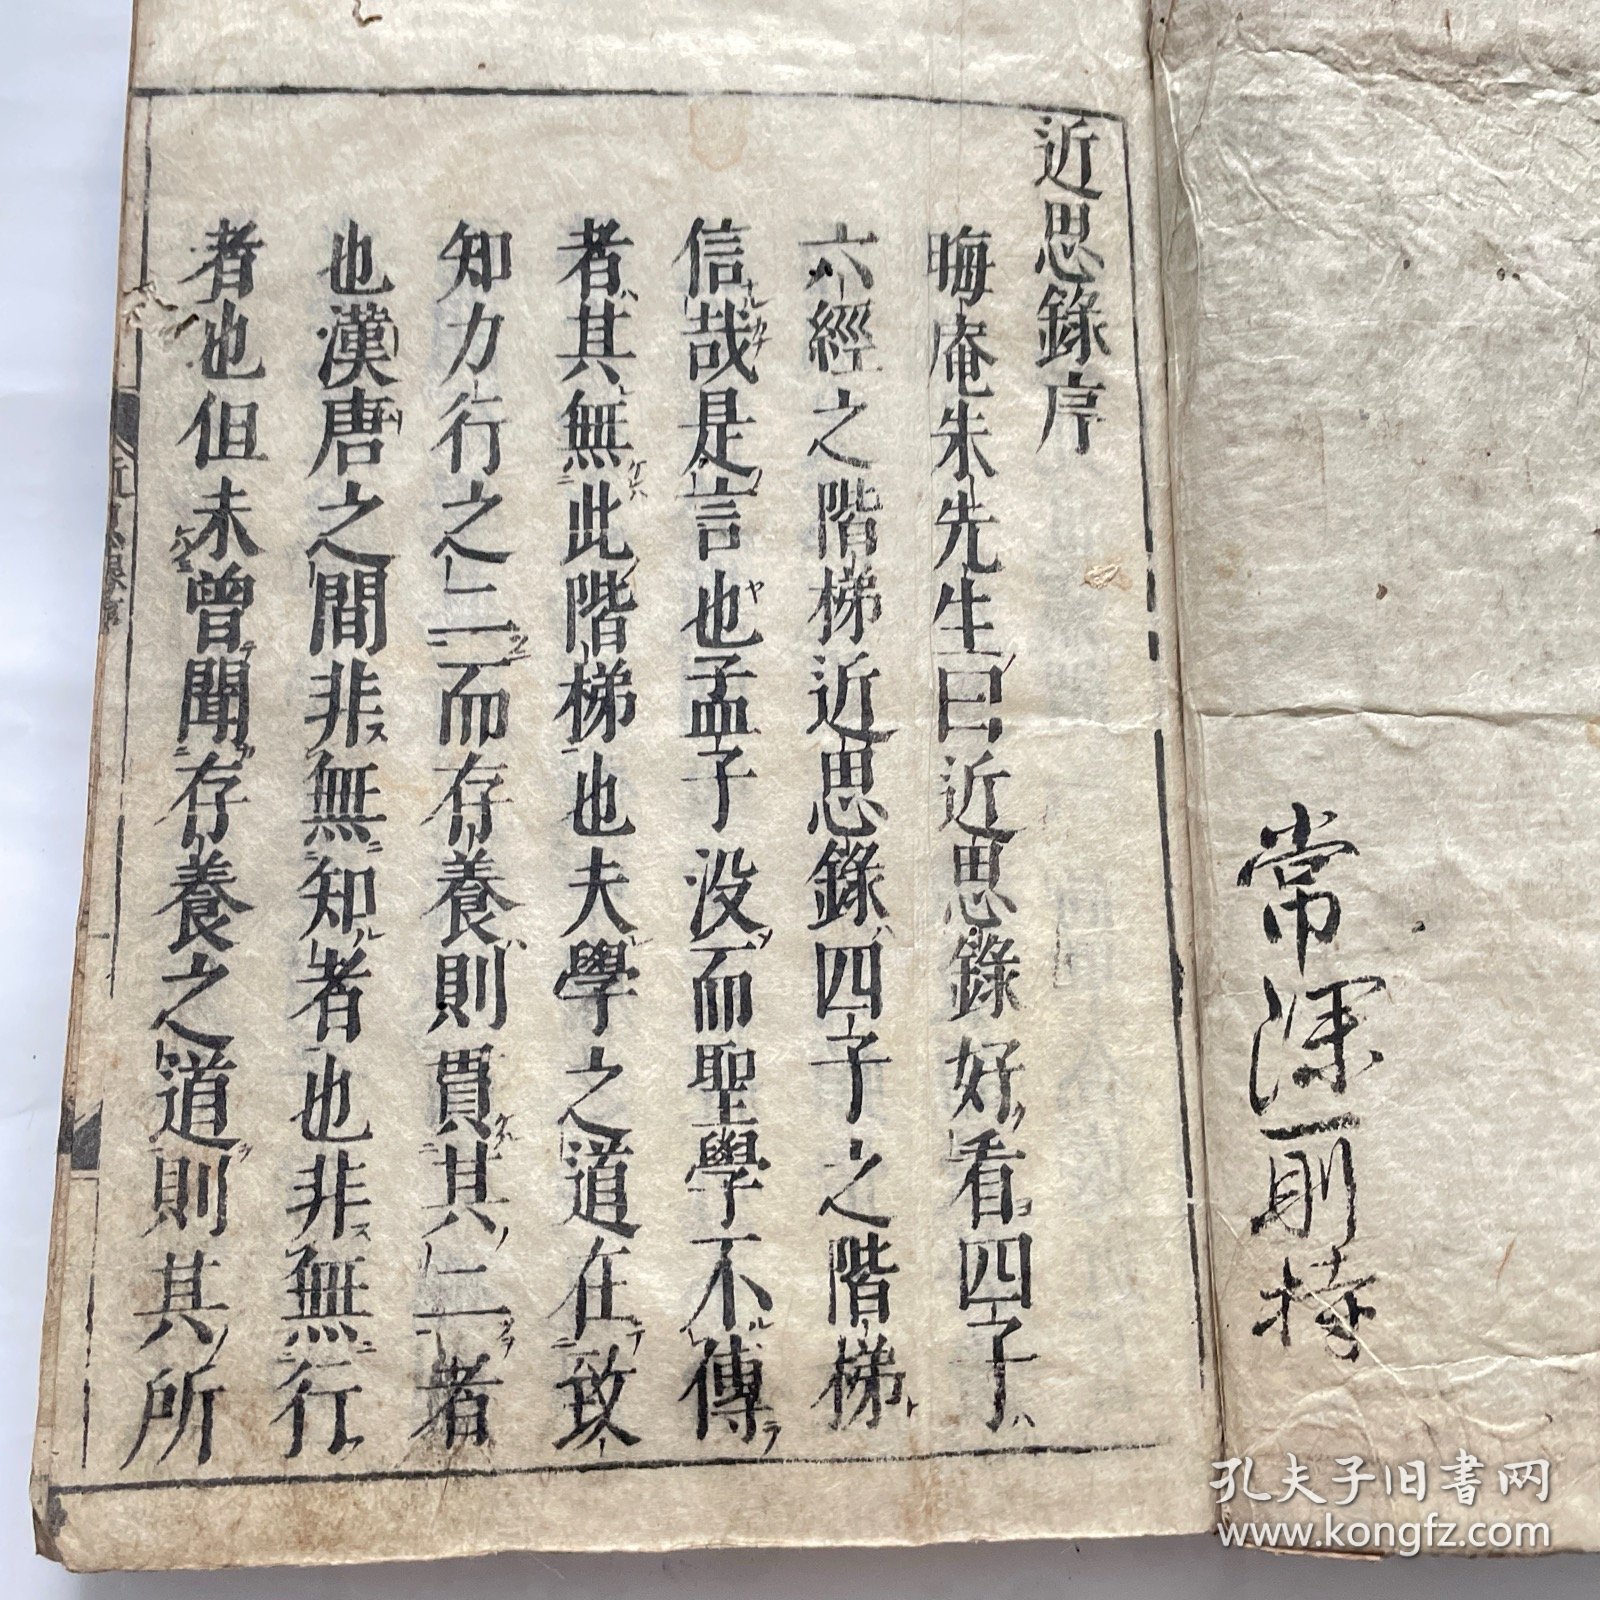 常深一則持
近思錄序
晦庵朱先生曰近思錄好看四子
六經之階梯近思錄四子之階梯
信哉是言也孟子没而聖學不傳
者其無此階梯也夫學之道在致
知力行之二而存養則貫其二者
也漢唐之間非無知者也非無行
者也但未曾聞存養之道則其所
孔夫子旧书网
www.kongfz.com